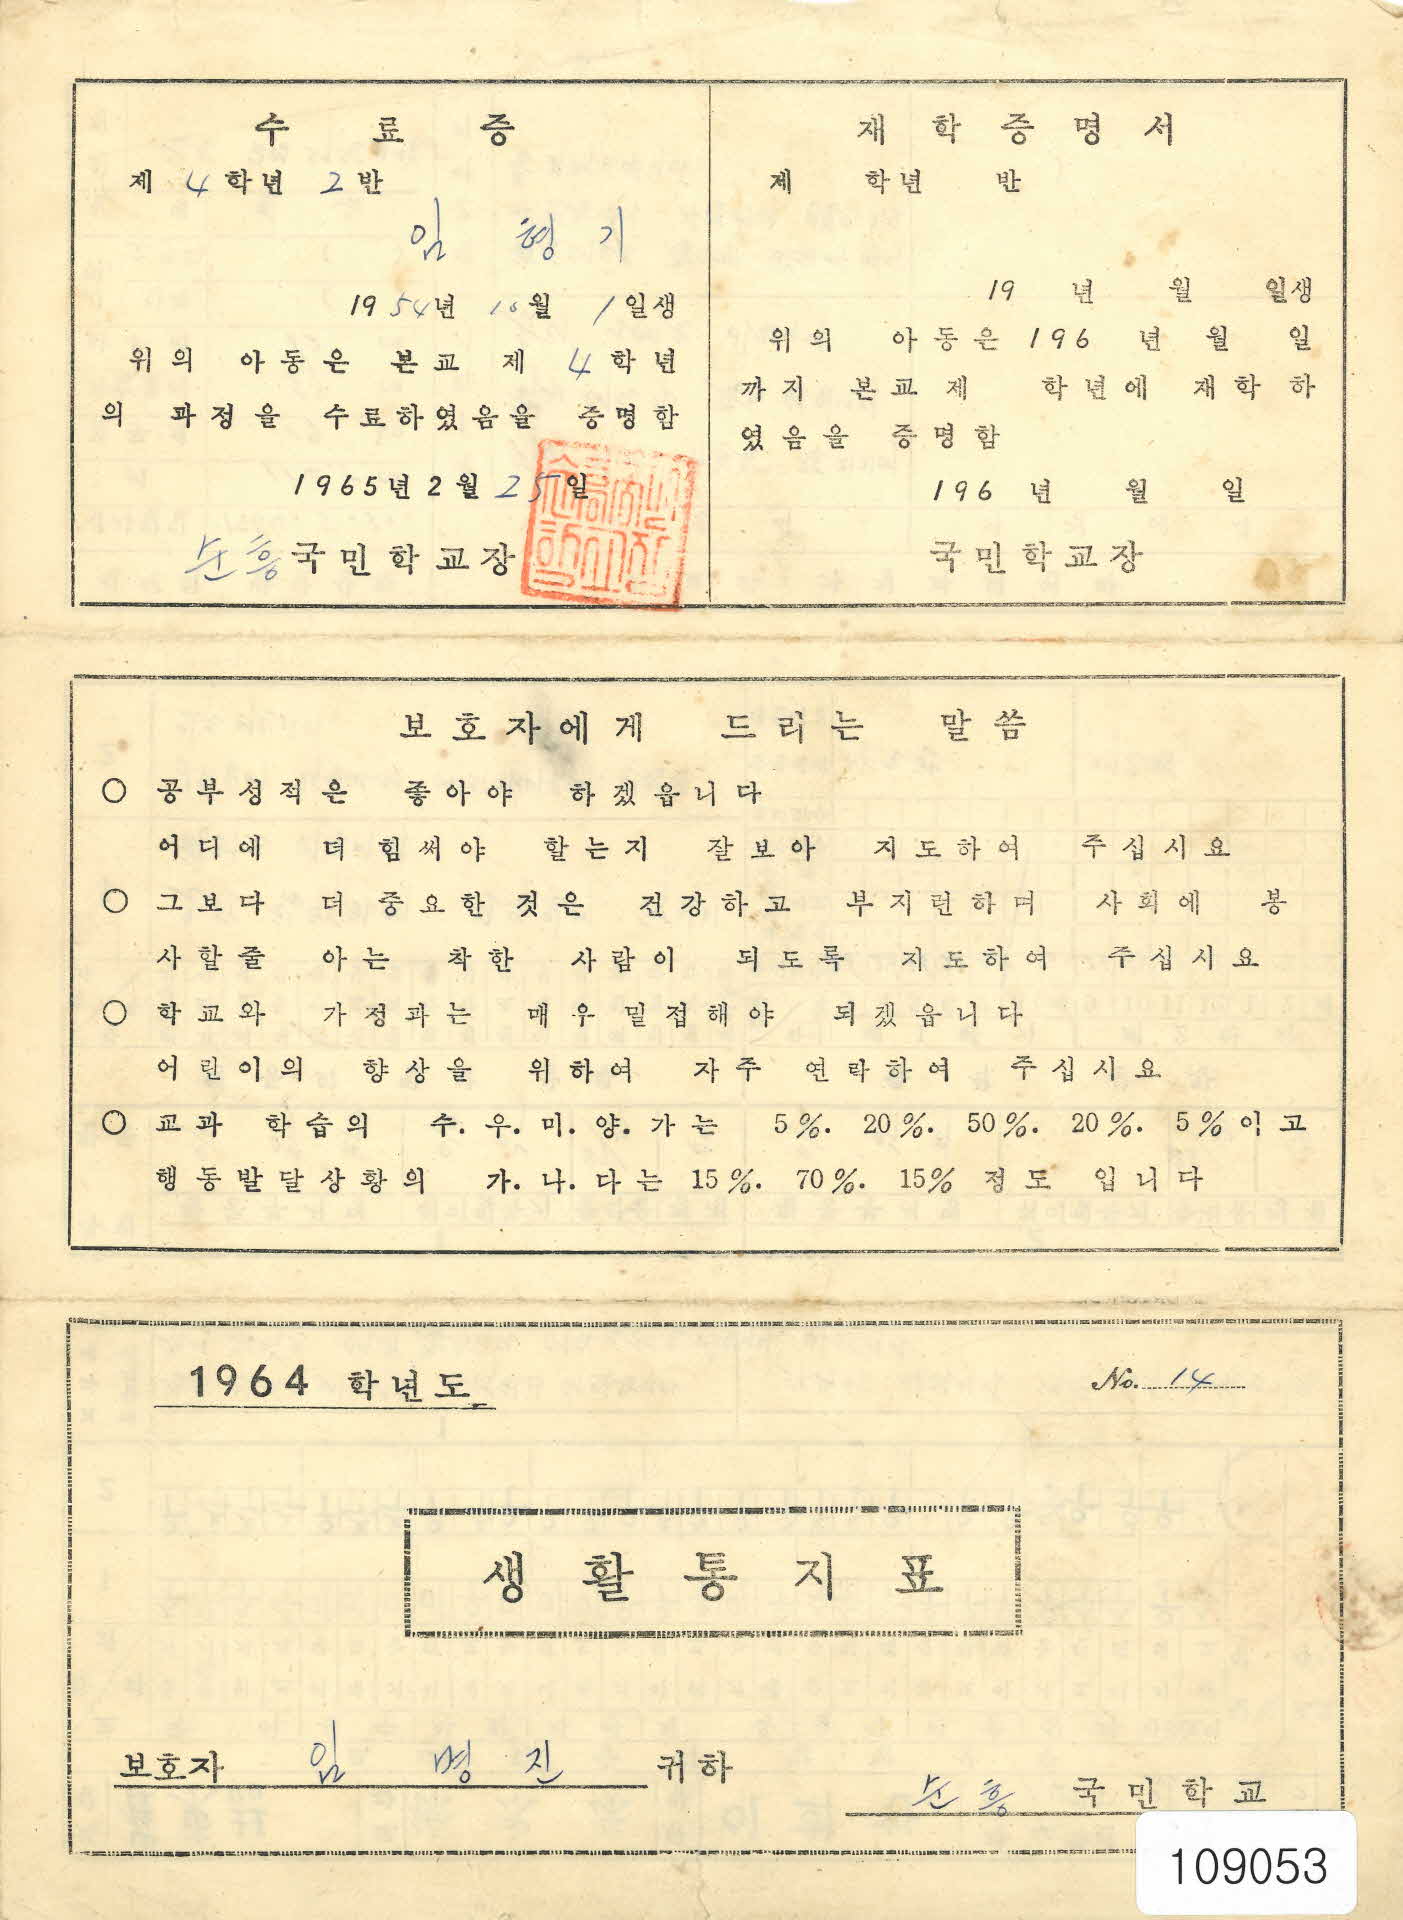 수 료 증
제 4 학년 2 반
임 형 기
1954년 10월 1일생
위의 아동은 본교 제 4 학년
의 과정을 수료하였음을 증명함
1965년 2월 25일
순흥 국민학교장
재 학 증 명 서
제 학년 반
19 년 월 일생
위의 아동은 196 년 월 일
까지 본교 제 학년에 재학하
였음을 증명함
196 년 월 일
국민학교장
보호자에게 드리는 말씀
○ 공부성적은 좋아야 하겠읍니다
어디에 더 힘써야 할는지 잘보아 지도하여 주십시요
○ 그보다 더 중요한 것은 건강하고 부지런하며 사회에 봉
사할줄 아는 착한 사람이 되도록 지도하여 주십시요
○ 학교와 가정과는 매우 밀접해야 되겠읍니다
어린이의 향상을 위하여 자주 연락하여 주십시요
○ 교과 학습의 수. 우. 미. 양. 가는 5%. 20%. 50%. 20%. 5%이고
행동발달상황의 가. 나. 다는 15%. 70%. 15% 정도 입니다
1964 학년도
No. 14
생 활 통 지 표
보호자 임 명 진 귀하
순흥 국민학교
109053